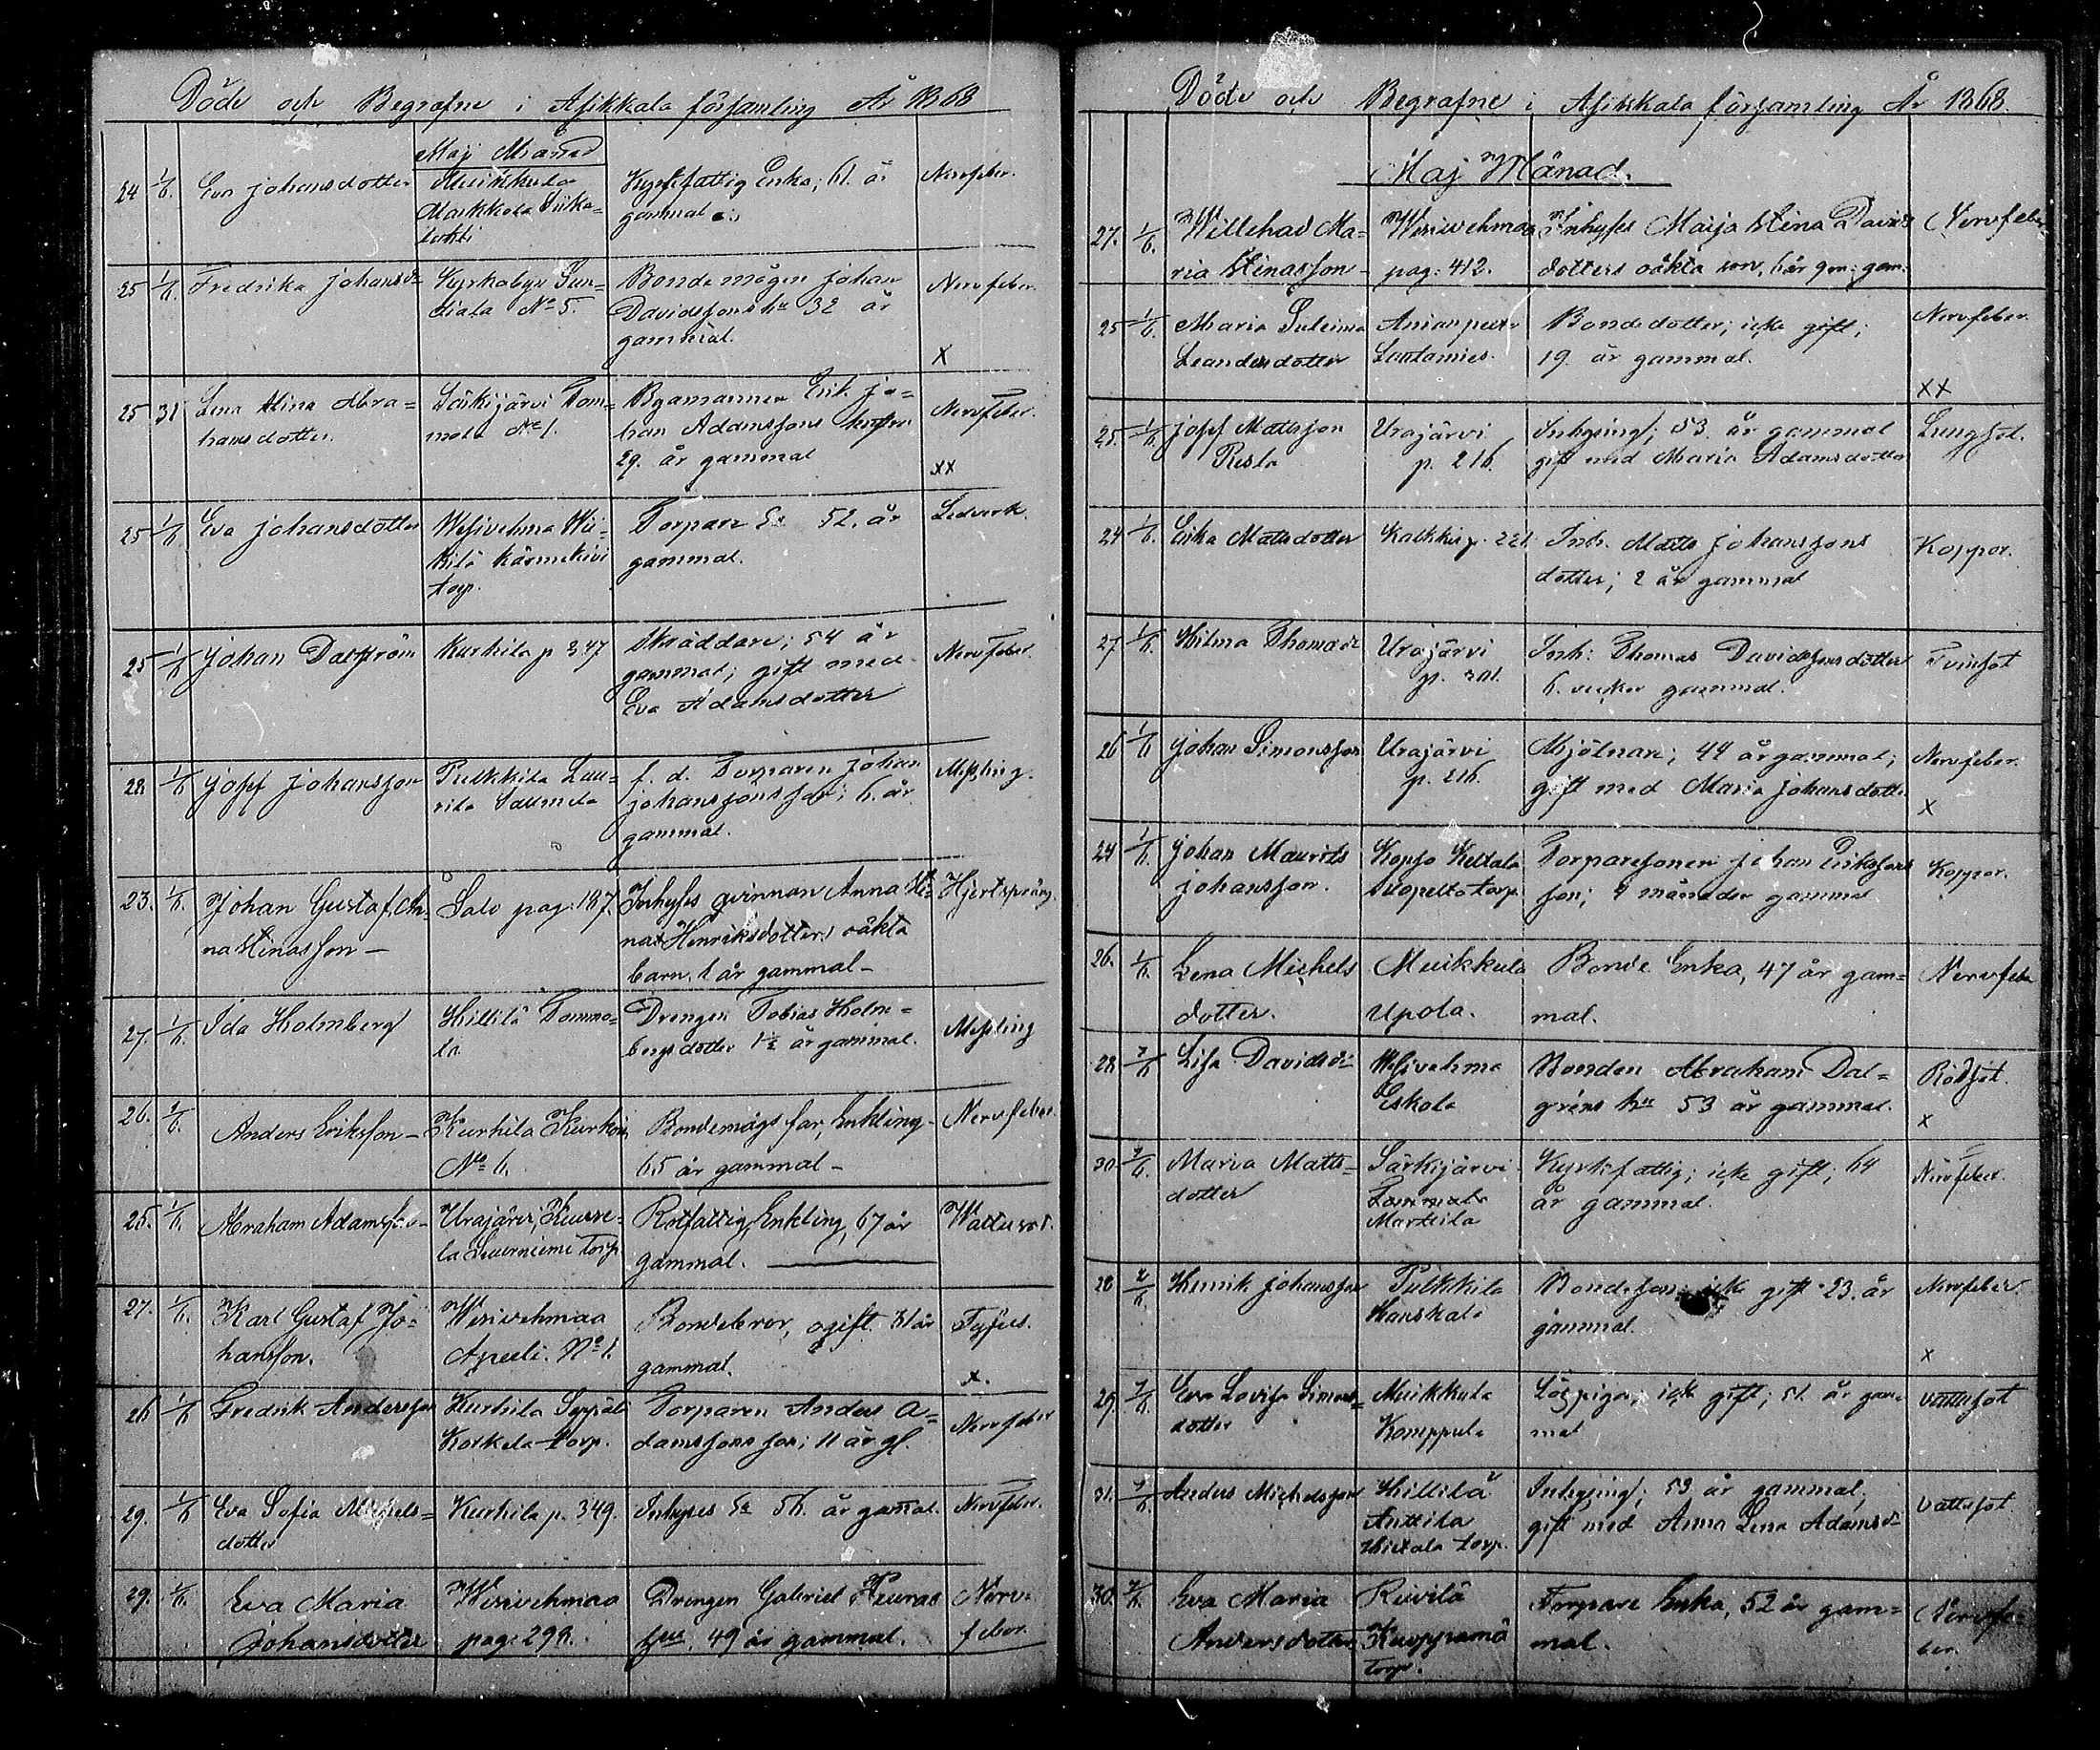 Döde och Begrafne i Asikkala församling År 1868
Maj Månad
24 1/6. Eva Johansdotter Muikkula Kyrkfattig Enka; 61. år Nervfeber.
Markkola gammal
25 1/6. Fredrika Johansd. Kyrkobyn Bondemågen Johan Nervfeber.
No 5. Davidssons hu 32 år
gammal.
X
25 31 Lena Stina Abra= Särkijärvi Tom= Byamannen Erik Jo= Nervfeber.
hamsdotter. mola No 1. han Adamssons hustru
29. år gammal xx
25 1/6 Eva Johansdotter Wesivehma Torpare Ea 52. år Ledverk.
gammal.
torp.
25 1/6 Johan Dalström Kurhila p 347 Skräddare; 54 år Nervfeber.
gammal; gift med
Eva Adamsdotter
28. 1/6 Josef Johansson Pulkkila Lau= f. d. Torparen Johan Messling.
rila Saumela Johanssons son; 6. år
gammal.
23. 1/6. Johan Gustaf An= Salo pag: 187. Inhyses qvinnan Anna Sti= Hjertsprång
na Stinasson — nas Henriksdotters oäkta
barn, 1 år gammal —
27. 1/6. Ida Holmberg Hillilä Tommo= Drengen Tobias Holm= Messling
la. bergs dotter 1½ år gammal.
26. 1/6. Anders Eriksson — Kurhila Kurkoi Bondemågs far, Enkling Nervfeber.
No 6. 65 år gammal —
25. 1/6. Abraham Adamsson — Urajärvi, Rotfattig Enkling, 67 år Wattusot.
torp gammal.
27. 1/6. Karl Gustaf Jo= Wesivehmaa Bondebror, ogift 31 år Tyfus.
hansson. Apeeli. No 1. gammal. x.
26 1/6 Fredrik Andersson Kurhila Seppälä Torparen Anders A= Nervfeber
Korkela torp. damssons son; 11 år gl.
29. 1/6 Eva Sofia Michels= Kurhila p. 349. Inhyses Ea 56. år gammal. Nervfeber.
dotter
29. 1/6. Eva Maria Wesivehmaa Drengen Gabriel Nerv=
Johansdotter pag: 299. 49 år gammal. feber.
Döde och Begrafne i Asikkala församling År 1868.
Maj Månad.
27. 1/6. Willehad Ma= Wesivehmaa Inhyses Maija Stina Davids Nervfeber
ria Stinasson — pag: 412. dotters oäkta son, 6 år gam:
25 1/6. Maria Bondedotter; icke gift; Nervfeber.
Leandersdotter 19. år gammal.
XX
25. 1/6. Josef Mattsson Urajärvi Inhysing; 53. år gammal Lungsot.
p. 216. gift med Maria Adamsdotter
24 1/6. Erika Mattsdotter Kalkkis p. 221. Inh. Matts Johanssons Koppor.
dotter; 2 år gammal
27 1/6. Hilma Thomasd. Urajärvi Inh: Thomas Davidssons dotter Tvinsot
p. 201. 6. veckor gammal.
26 1/6 Johan Simonsson Urajärvi Mjölnare; 44 år gammal; Nervfeber.
p. 216. gift med Maria Johansdotter
X
24 1/6. Johan Maurits Kopso Torparesonen Johan Erikssons Koppor.
Johansson. torp. son; 9 månader gammal
26. 1/6. Lena Michels Muikkula Bonde Enka, 47 år gam= Nervfeber
dotter. Upola. mal.
28 7/6 Lisa Davidsd. Wesivehma Bonden Abraham Dal= Rödsot.
Eskola gréns hu 53 år gammal.
x
30 7/6. Maria Matts= Särkijärvi Kyrkfattig; icke gift; 64 Nervfeber.
dotter Tommola år gammal.
Marttila
28 7/6 Henrik Johansson Pulkkila Bondeson; icke gift 23. år Nervfeber.
Hanskala gammal.
x
29. 7/6 Eva Lovisa Simons= Muikkula Löspiga; icke gift; 51. år gam= vattusot
dotter Komppula mal
31. 7/6 Anders Michelsson Hillilä Inhysing; 53 år gammal; vattusot
Anttila gift med Anna Lena Adamsd.
Hietala torp.
30. 7/6. Eva Maria Reivilä Torpare Enka, 52 år gam= Nervfe=
Andersdotter Kuoppamä mal. ber.
torp.